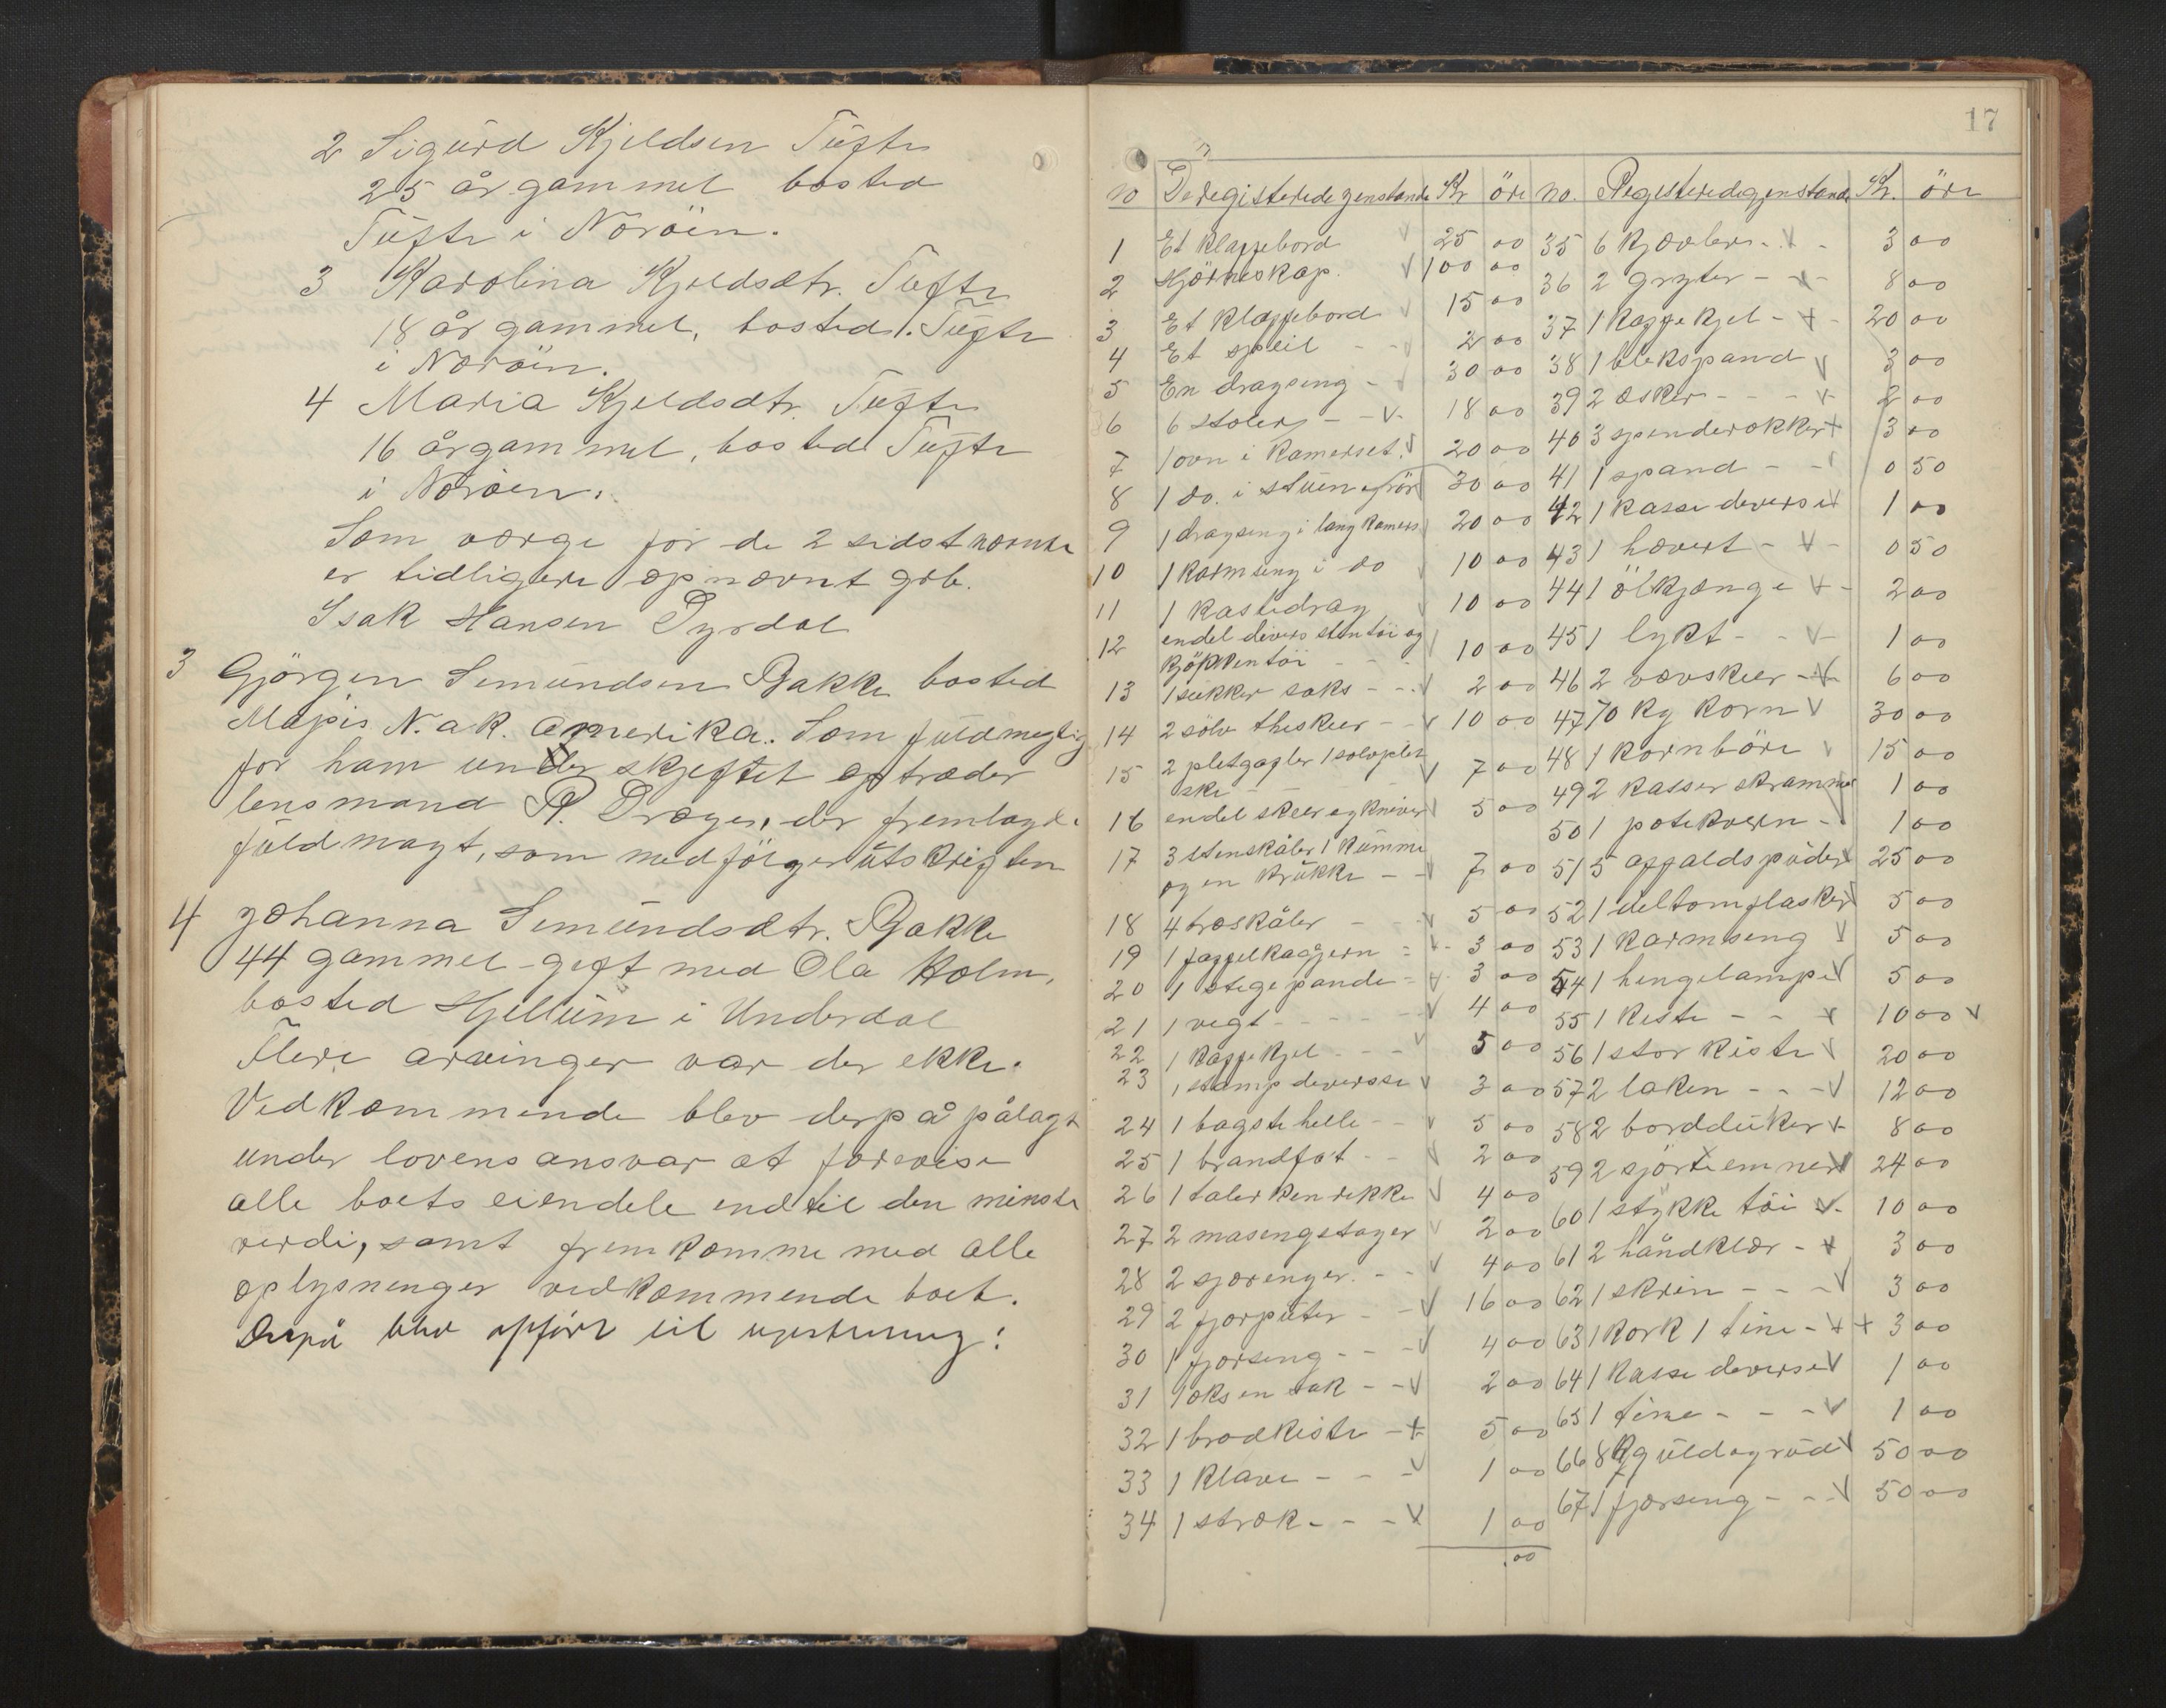 2 Sigurd Kjeldsen Tufte
25 år gammel bosted
Tufte i Nöröien.
3 Karolina Kjeldsdtr. Tufte
18 år gammel, bosted. Tufte
i Nöröin.
4 Maria Kjeldsdtr. Tufte
16 år gammel, bosted Tufte
i Nöröen.
Som værge for de 2 sidst nævnte
er tidligere opnævnt grb.
Isak Hansen Dyrdal
3 Gjörgen Simundsen Bakke bosted
N. ak. Amerika. Som fuldmegtig
for ham under skjeftet optræder
lensmand R. Dræger, der fremlagde
fuldmagt, som medfölger utskriften
4 Johanna Simundsdtr. Bakke
44 gammel - gift med Ola Holm,
bosted Hjellum i Underdal
Flere arvinger var der ekke.
Vedkommende blev derpå pålagt
under lovens ansvar at forevise
alle boets eiendele endtil den minste
verdi, samt fremkomme med alle
oplysninger vedkommende boet.
Derpå blev opfört til registrering:
17
no De registerede genstande Kr öre
1 Et klappebord 25 00
2 Hjörneskap. 100 00
3 Et klappebord 15 00
4 Et speil - - 2 00
5 En dragseng - 30 00
6 6 stoler - - 18 00
7 1 ovn i kamerset. 20 00
8 1 do. i stuen o/rör 30 00
9 1 dragseng i lang kamers 20 00
10 1 karmseng i do 10 00
11 1 kastedrag 10 00
12 endel divers stentöi og
kjökkentöi - - - 10 00
13 1 sukker saks - - 2 00
14 2 sölv theskeer - - 10 00
15 2 pletgafler 1 sölvplet
ske - - - - 7 00
16 endel skeer og kniver 5 00
17 3 stenskåler 1 kumme
og en krukke - - 7 00
18 4 træskåler - - 5 00
19 1 faffelkagjern - - 3 00
20 1 stegepande - 3 00
21 1 vegt - - - - 4 00
22 1 kaffekjel - - - 5 00
23 1 stamp deverse 3 00
24 1 bagstehelle - - 5 00
25 1 brandfat - - 2 00
26 1 talerkenrekke 4 00
27 2 masengstager 2 00
28 2 sparenger - - 4 00
29 2 fjorputer - - 16 00
30 1 fjorseng - - - 4 00
31 1 oksen sak - - 2 00
32 1 brodkiste - 5 00
33 1 klave - - - 1 00
34 1 strok - - - 1 00
.00
no. Registeredegenstande Kr. öre
35 6 kjævler - - 3 00
36 2 gryter - - - 8 00
37 1 kaffekjel - - 20 00
38 1 blekspand 3 00
39 2 æsker - - - 2 00
40 3 spenderokker 3 00
41 1 spand - - 0 50
42 1 kasse deverse 1 00
43 1 hævert - - 0 50
44 1 ölkjænge - 2 00
45 1 lykt - - - 1 00
46 2 vævskeer - 6 00
47 70 kg korn 30 00
48 1 kornböre 15 00
49 2 kasser skrammel 1 00
50 1 potekvern - 1 00
51 5 affaldsputer 25 00
52 1 del tomflasker 5 00
53 1 karmseng 5 00
54 1 hengelampe 5 00
55 1 kiste - - 10 00
56 1 stor kiste 20 00
57 2 laken - - - 12 00
58 2 bordduker 8 00
59 2 sjörteemner 24 00
60 1 stykke töi 10 00
61 2 håndklær - 3 00
62 1 skrin - - - 3 00
63 1 kork 1 tine - 3 00
64 1 kasse deverse 1 00
65 1 tine - - - 1 00
66 8 kg uld og rud 50 00
67 1 fjorseng - - 50 00